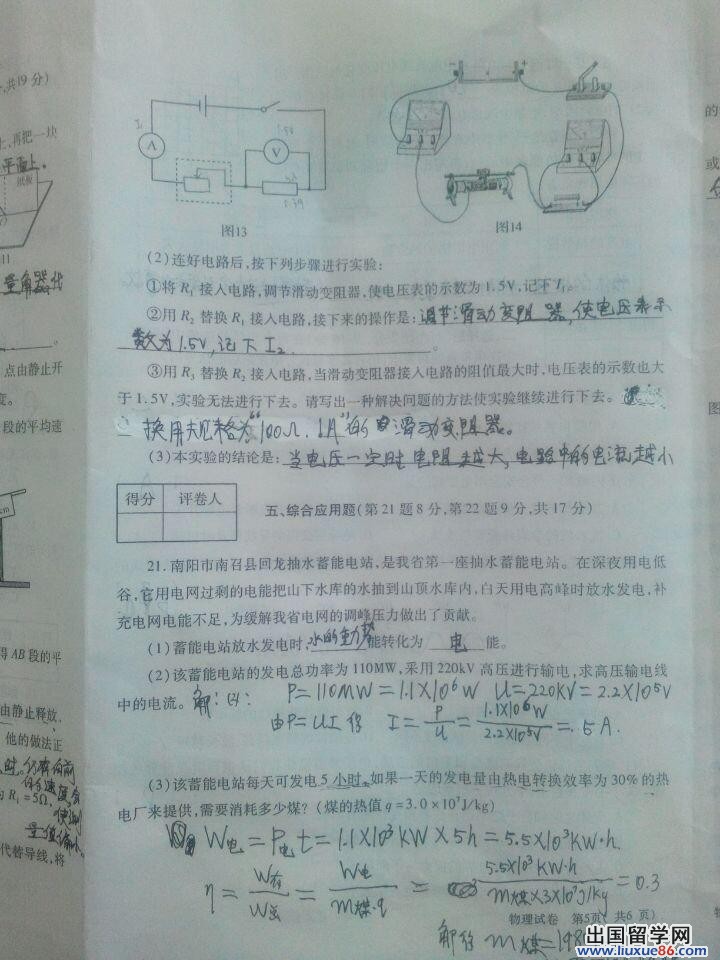 ,共19分)
上,再把一块
平面上。
纸板
11
量角器代
点由静止开
变。
段的平均速
得AB段的平
由静止释放,
他的做法正
为R₁=5Ω,
代替导线,将
A
V
图13
图14
(2)连好电路后,按下列步骤进行实验:
①将R₁接入电路,调节滑动变阻器,使电压表的示数为1.5V,记下I₁。
②用R₂替换R₁接入电路,接下来的操作是:调节滑动变阻器,使电压表示
数为1.5V,记下I₂。
③用R₃替换R₂接入电路,当滑动变阻器接入电路的阻值最大时,电压表的示数也大
于1.5V,实验无法进行下去。请写出一种解决问题的方法使实验继续进行下去。
换用规格为“100Ω.1A”的滑动变阻器。
(3)本实验的结论是:当电压一定时电阻越大,电路中的电流越小
得分 评卷人
五、综合应用题(第21题8分,第22题9分,共17分)
21.南阳市南召县回龙抽水蓄能电站,是我省第一座抽水蓄能电站。在深夜用电低
谷,它用电网过剩的电能把山下水库的水抽到山顶水库内,白天用电高峰时放水发电,补
充电网电能不足,为缓解我省电网的调峰压力做出了贡献。
(1)蓄能电站放水发电时,水的重力势能转化为 电 能。
(2)该蓄能电站的发电总功率为110MW,采用220kV高压进行输电,求高压输电线
中的电流。解:(2): P=110MW=1.1×10⁶W U=220KV=2.2×10⁵V
由P=UI得 I=P/U=1.1×10⁶W/2.2×10⁵V=5A.
(3)该蓄能电站每天可发电5小时。如果一天的发电量由热电转换效率为30%的热
电厂来提供,需要消耗多少煤?(煤的热值q=3.0×10⁷J/kg)
W电=P电t=1.1×10³KW×5h=5.5×10³KW·h.
η=W有/W总=W电/m煤·q=5.5×10³KW·h/m煤×3×10⁷J/kg=0.3
物理试卷 第5页(共6页)
解得 m煤=198
出国留学网
www.liuxue86.com